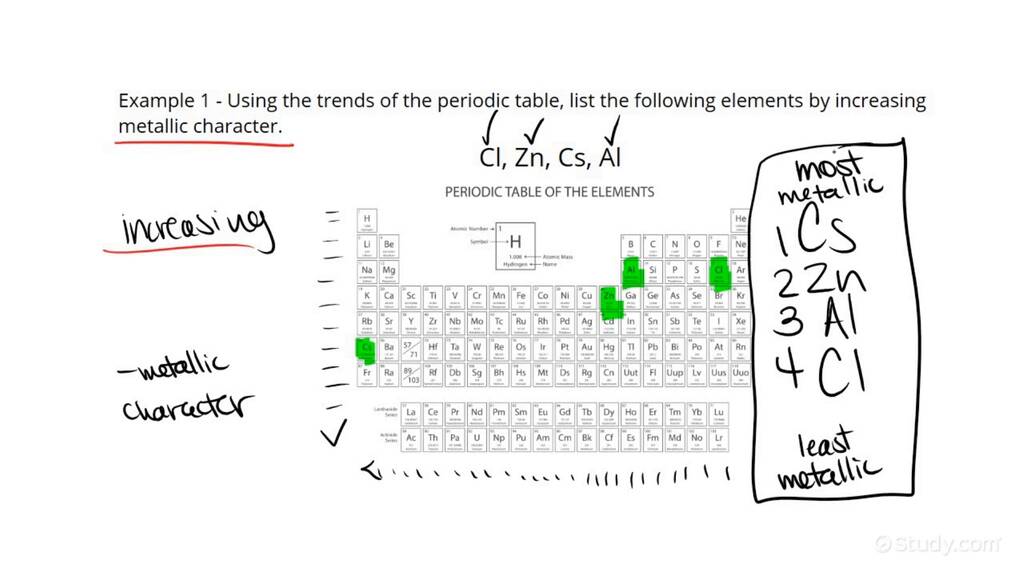 Example 1 - Using the trends of the periodic table, list the following elements by increasing
metallic character.
Cl, Zn, Cs, Al
PERIODIC TABLE OF THE ELEMENTS
increasing
- metallic
character
Atomic Number
1
Symbol
H
1.008
Atomic Mass
Hydrogen
Name
H He
Li Be B C N O F Ne
Na Mg Al Si P S Cl Ar
K Ca Sc Ti V Cr Mn Fe Co Ni Cu Zn Ga Ge As Se Br Kr
Rb Sr Y Zr Nb Mo Tc Ru Rh Pd Ag Cd In Sn Sb Te I Xe
Cs Ba 57/71 Hf Ta W Re Os Ir Pt Au Hg Tl Pb Bi Po At Rn
Fr Ra 89/103 Rf Db Sg Bh Hs Mt Ds Rg Cn Uut Fl Uup Lv Uus Uuo
Lanthanide
Series
La Ce Pr Nd Pm Sm Eu Gd Tb Dy Ho Er Tm Yb Lu
Actinide
Series
Ac Th Pa U Np Pu Am Cm Bk Cf Es Fm Md No Lr
most
metallic
1 Cs
2 Zn
3 Al
4 Cl
least
metallic
Study.com